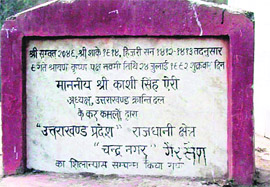 श्री सम्वत २०४९, श्री शाके १९१४, हिजरी सन १४१२-१४१३ तदनुसार
९ गते श्रावण कृष्ण पक्ष नवमी तिथि २४ जुलाई १९९२ शुक्रवार दिन
माननीय श्री काशी सिंह ऐरी
अध्यक्ष, उत्तराखण्ड क्रान्ति दल
के कर कमलों द्वारा
"उत्तराखण्ड प्रदेश" राजधानी क्षेत्र
"चन्द्र नगर" गैरसैंण
का शिलान्यास सम्पन्न किया गया